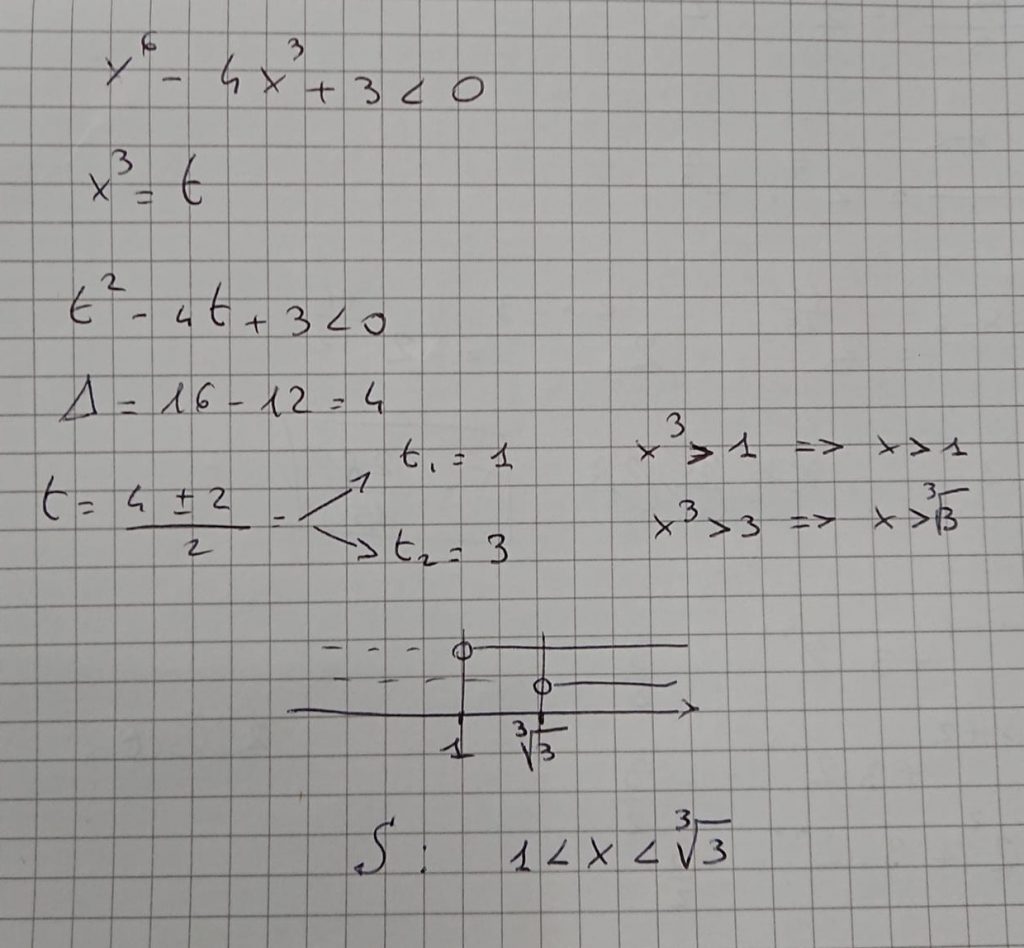 x⁶ - 4x³ + 3 < 0
x³ = t
t² - 4t + 3 < 0
Δ = 16 - 12 = 4
t = (4 ± 2)/2 =
t₁ = 1
t₂ = 3
x³ > 1 => x > 1
x³ > 3 => x > ∛3
1 ∛3
S: 1 < x < ∛3